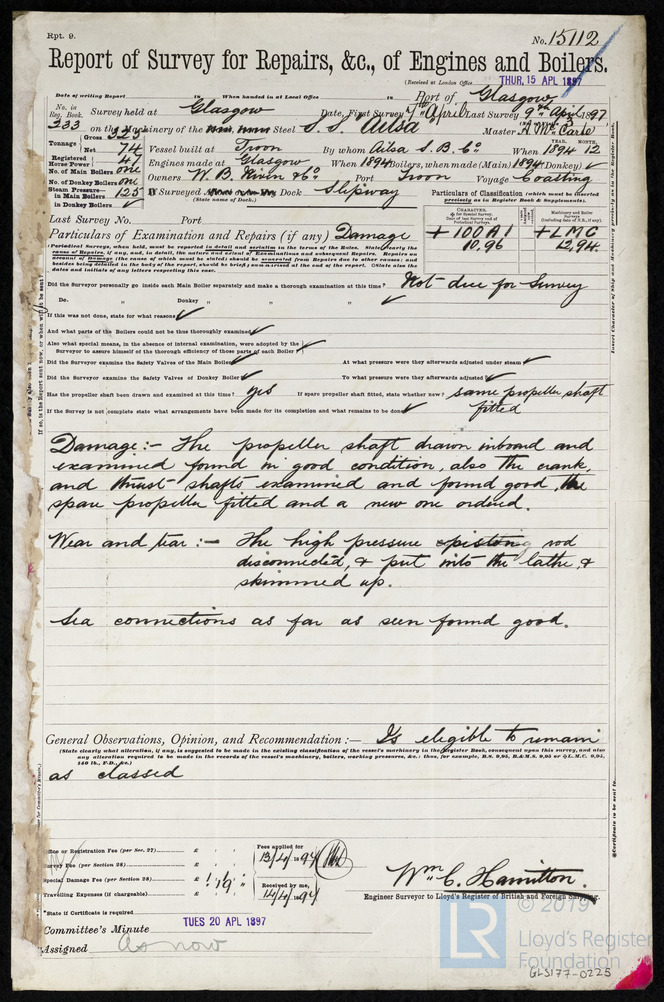 Rpt. 9.
No. 15112
Report of Survey for Repairs, &c., of Engines and Boilers.
(Received at London Office THUR, 15 APL 1897
Date of writing Report in When handed in at Local Office in Port of Glasgow
No. in Reg. Book. Survey held at Glasgow Date, First Survey 7th April Last Survey 9th April 1897
333 on the Machinery of the Steel S. S. Ailsa Master A. McCarle
Tonnage Gross Net 74 Vessel built at Troon By whom Ailsa S. B. Co. When YEAR. 1894 MONTH. 12
Registered Horse Power 47 Engines made at Glasgow When 1894 Boilers, when made (Main) 1894 (Donkey) ✓
No. of Main Boilers one Owners W. B. Niven & Co. Port Troon Voyage Coasting
No. of Donkey Boilers one
Steam Pressure in Main Boilers 125 If Surveyed Afloat or in Dry Dock Slipway
in Donkey Boilers ✓ (State name of Dock.)
Particulars of Classification (which must be inserted precisely as in Register Book & Supplements).
Last Survey No. Port
CHARACTER. Machinery and Boiler Surveys
+ 100 A 1 + LMC
10.96 12.94
Particulars of Examination and Repairs (if any) Damage
(Periodical Surveys, when held, must be reported in detail and seriatim in the terms of the Rules. State clearly the
causes of Repairs, if any, and, in detail, the nature and extent of Examinations and subsequent Repairs. Repairs on
account of Damage (the cause of which must be stated) should be separated from Repairs due to other causes; and
besides being detailed in the body of the report, should be briefly summarised at the end of the report. (State also the
dates and initials of any letters respecting this case.
Did the Surveyor personally go inside each Main Boiler separately and make a thorough examination at this time? Not due for Survey
Do. " Donkey " " " ✓
If this was not done, state for what reasons ✓
And what parts of the Boilers could not be thus thoroughly examined ✓
Also what special means, in the absence of internal examination, were adopted by the
Surveyor to assure himself of the thorough efficiency of those parts of each Boiler ✓
Did the Surveyor examine the Safety Valves of the Main Boiler ✓ At what pressure were they afterwards adjusted under steam ✓
Did the Surveyor examine the Safety Valves of Donkey Boiler ✓ To what pressure were they afterwards adjusted ✓
Has the propeller shaft been drawn and examined at this time? yes If spare propeller shaft fitted, state whether new? same propeller shaft
fitted
If the Survey is not complete state what arrangements have been made for its completion and what remains to be done ✓
Damage:- The propeller shaft drawn inboard and
examined found in good condition, also the crank,
and thrust shafts examined and found good, the
spare propeller fitted and a new one ordered.
Wear and tear:- The high pressure piston rod
disconnected, & put into the lathe, &
skimmed up.
Sea connections as far as seen found good.
General Observations, Opinion, and Recommendation:— Is eligible to remain
(State clearly what alteration, if any, is suggested to be made in the existing classification of the vessel's machinery in the Register Book, consequent upon this survey, and also
any alteration required to be made in the records of the vessel's machinery, boilers, working pressures, &c.: thus, for example, B.S. 9,95, B.&M.S. 9,95 or L.M.C. 9,95,
140 lb., F.D., &c.)
as classed
Office or Registration Fee (per Sec. 27) £ : :
Survey Fee (per Section 28) £ : :
Special Damage Fee (per Section 28) £ 1 : 19 :
Travelling Expenses (if chargeable) £ : :
Fees applied for
13/4/1897
Received by me,
14/4/1897
Wm. C. Hamilton.
Engineer Surveyor to Lloyd's Register of British and Foreign Shipping.
*State if Certificate is required
TUES 20 APL 1897
Committee's Minute
Assigned As now
© 2019
LR
Lloyd's Register
Foundation
GLS177-0225